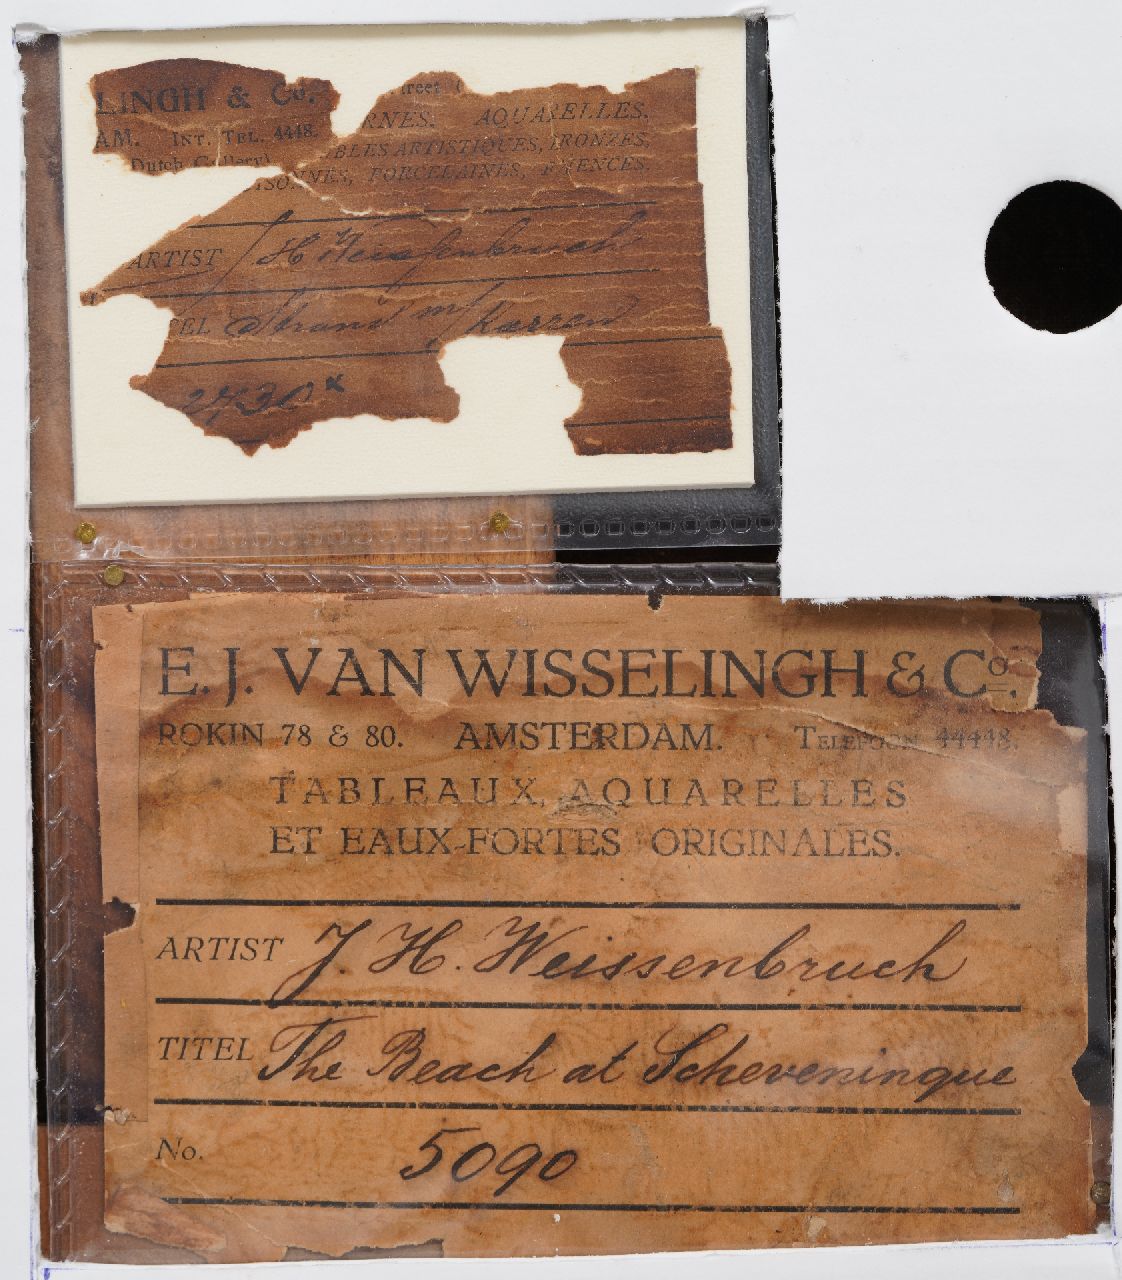 LINGH & Co.
AM. INT. TEL. 4448.
Dutch Gallery)
RNES. AQUARELLES.
BLES ARTISTIQUES, BRONZES,
ISONNÉS, PORCELAINES, F ENCES.
ARTIST J H Weissenbruch
EL Strand m/ Karren
2730 x
E. J. VAN WISSELINGH & Co.
ROKIN 78 & 80. AMSTERDAM. TELEFOON 44448.
TABLEAUX, AQUARELLES
ET EAUX-FORTES ORIGINALES.
ARTIST J. H. Weissenbruch
TITEL The Beach at Scheveninque
No. 5090